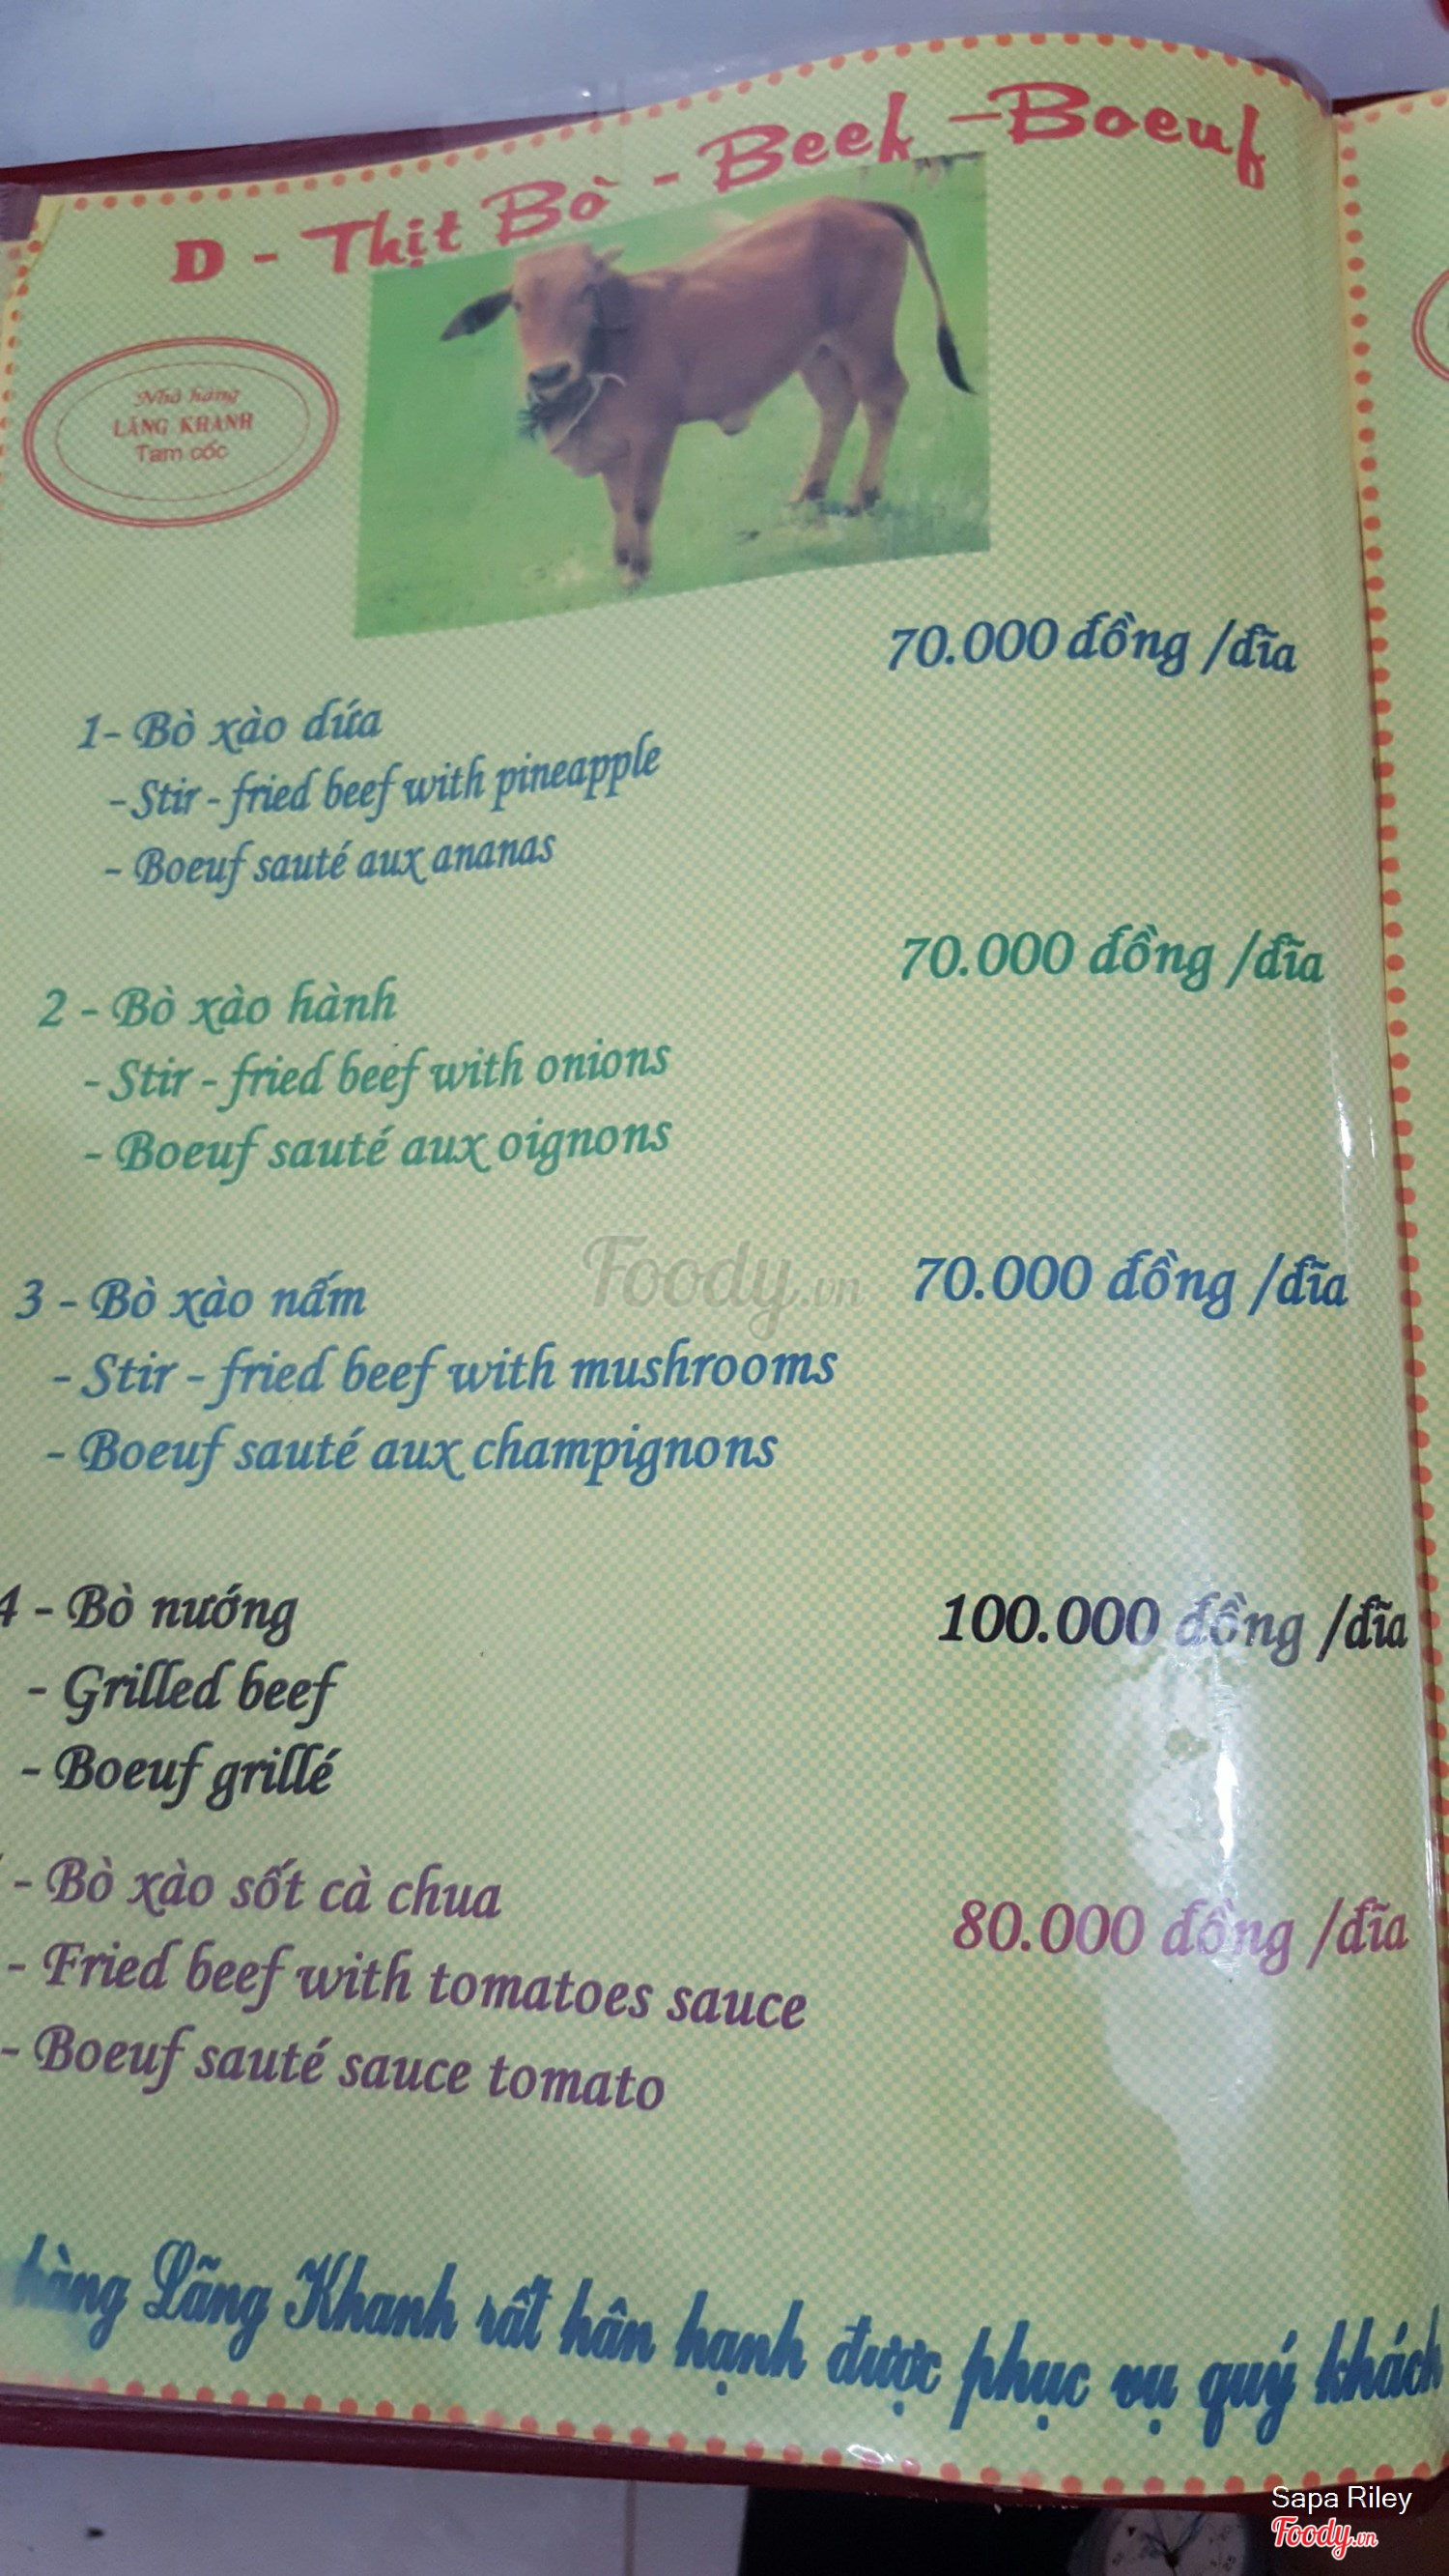 D - Thịt Bò - Beef - Boeuf
Nhà hàng
LÃNG KHANH
Tam cốc
70.000 đồng /đĩa
1- Bò xào dứa
- Stir - fried beef with pineapple
- Boeuf sauté aux ananas
70.000 đồng /đĩa
2 - Bò xào hành
- Stir - fried beef with onions
- Boeuf sauté aux oignons
Foody.vn
3 - Bò xào nấm
70.000 đồng /đĩa
- Stir - fried beef with mushrooms
- Boeuf sauté aux champignons
4 - Bò nướng
100.000 đồng /đĩa
- Grilled beef
- Boeuf grillé
- Bò xào sốt cà chua
80.000 đồng /đĩa
- Fried beef with tomatoes sauce
- Boeuf sauté sauce tomato
hàng Lãng Khanh rất hân hạnh được phục vụ quý khách
Sapa Riley
Foody.vn